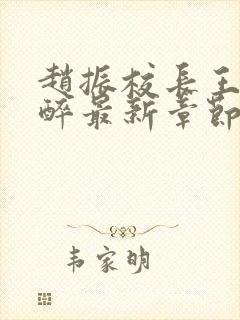 趙振校長王
醉最新章節
韦家明